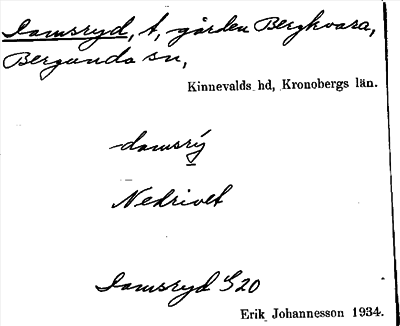 Damsryd, t, gården Bergkvara,
Bergunda sn,
Kinnevalds hd, Kronobergs län.
damsrý
Nedrivet
Damsryd S20
Erik Johannesson 1934.